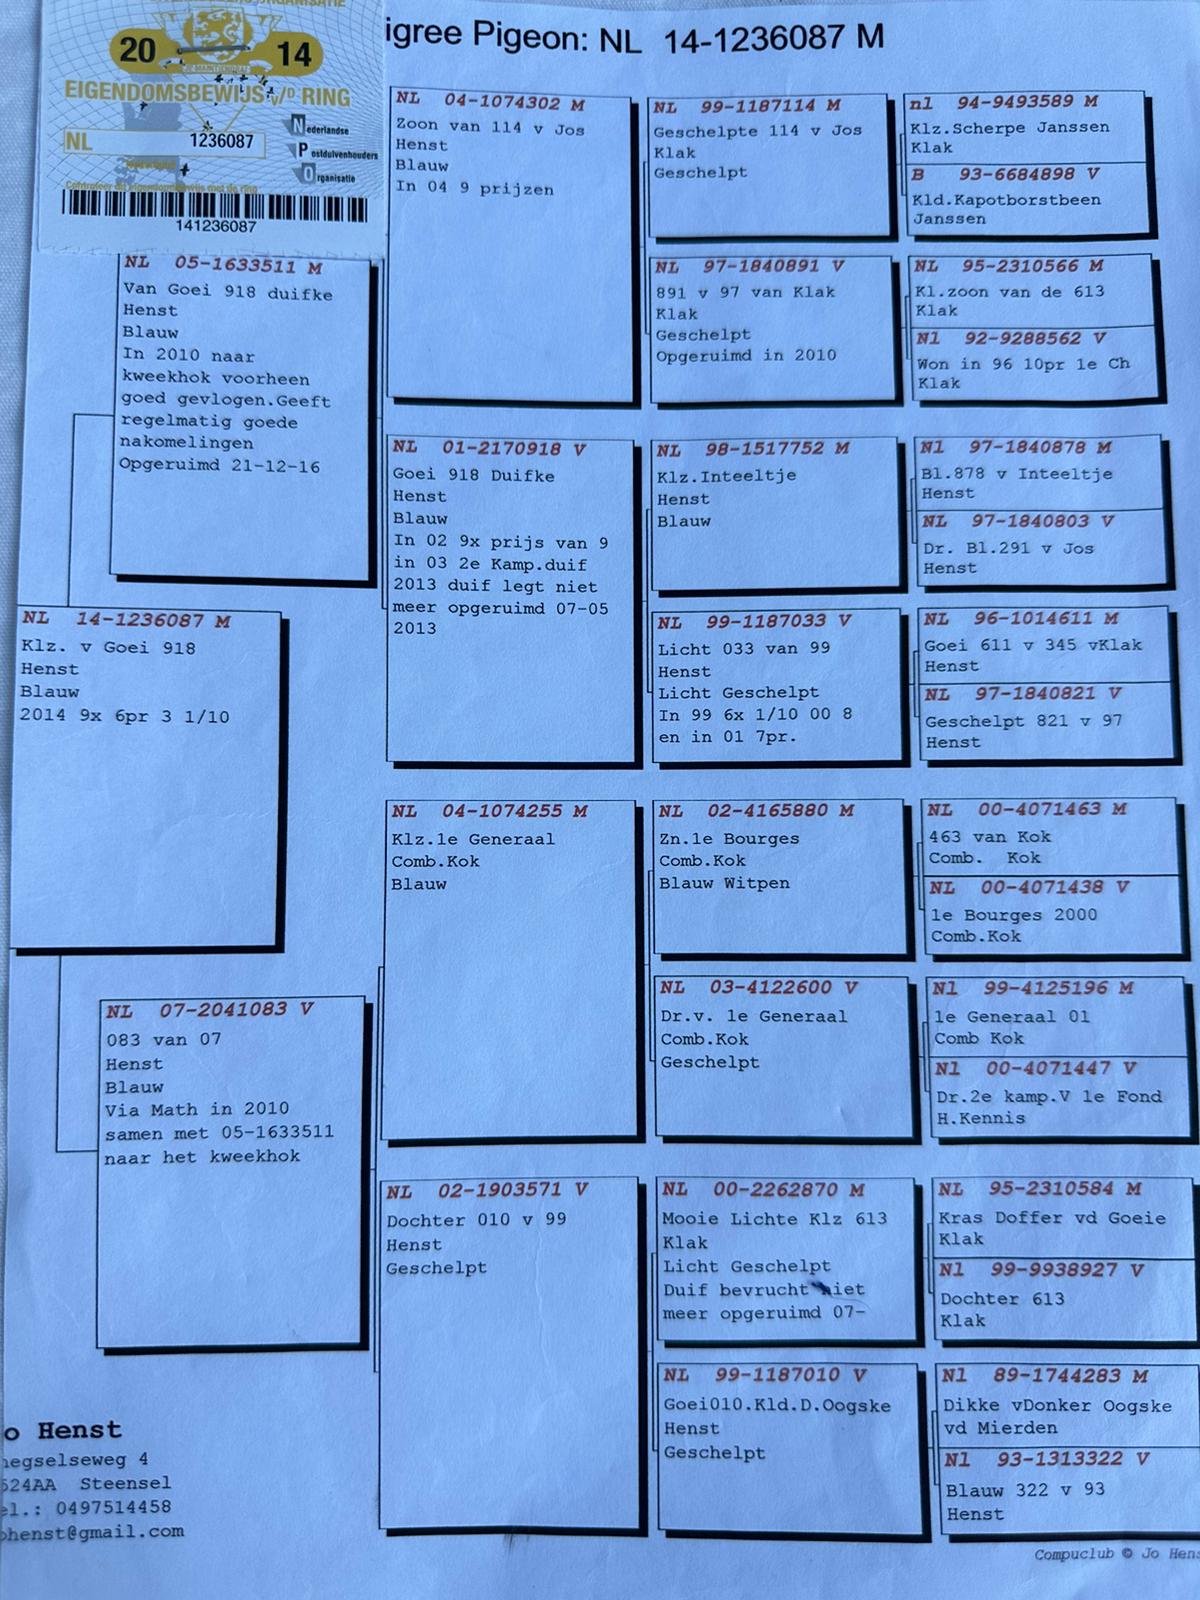 20 14
EIGENDOMSBEWIJS v/D RING
NL 1236087
Nederlandse
Postduivenhouders
Organisatie
141236087
igree Pigeon: NL 14-1236087 M
NL 05-1633511 M
Van Goei 918 duifke
Henst
Blauw
In 2010 naar
kweekhok voorheen
goed gevlogen.Geeft
regelmatig goede
nakomelingen
Opgeruimd 21-12-16
NL 14-1236087 M
Klz. v Goei 918
Henst
Blauw
2014 9x 6pr 3 1/10
NL 07-2041083 V
083 van 07
Henst
Blauw
Via Math in 2010
samen met 05-1633511
naar het kweekhok
o Henst
egselseweg 4
524AA Steensel
el.: 0497514458
ohenst@gmail.com
NL 04-1074302 M
Zoon van 114 v Jos
Henst
Blauw
In 04 9 prijzen
NL 01-2170918 V
Goei 918 Duifke
Henst
Blauw
In 02 9x prijs van 9
in 03 2e Kamp.duif
2013 duif legt niet
meer opgeruimd 07-05
2013
NL 04-1074255 M
Klz.1e Generaal
Comb.Kok
Blauw
NL 02-1903571 V
Dochter 010 v 99
Henst
Geschelpt
NL 99-1187114 M
Geschelpte 114 v Jos
Klak
Geschelpt
NL 97-1840891 V
891 v 97 van Klak
Klak
Geschelpt
Opgeruimd in 2010
NL 98-1517752 M
Klz.Inteeltje
Henst
Blauw
NL 99-1187033 V
Licht 033 van 99
Henst
Licht Geschelpt
In 99 6x 1/10 00 8
en in 01 7pr.
NL 02-4165880 M
Zn.1e Bourges
Comb.Kok
Blauw Witpen
NL 03-4122600 V
Dr.v. 1e Generaal
Comb.Kok
Geschelpt
NL 00-2262870 M
Mooie Lichte Klz 613
Klak
Licht Geschelpt
Duif bevrucht niet
meer opgeruimd 07-
NL 99-1187010 V
Goei010.Kld.D.Oogske
Henst
Geschelpt
nl 94-9493589 M
Klz.Scherpe Janssen
Klak
B 93-6684898 V
Kld.Kapotborstbeen
Janssen
NL 95-2310566 M
Kl.zoon van de 613
Klak
Nl 92-9288562 V
Won in 96 10pr 1e Ch
Klak
Nl 97-1840878 M
Bl.878 v Inteeltje
Henst
NL 97-1840803 V
Dr. Bl.291 v Jos
Henst
NL 96-1014611 M
Goei 611 v 345 vKlak
Henst
NL 97-1840821 V
Geschelpt 821 v 97
Henst
NL 00-4071463 M
463 van Kok
Comb. Kok
NL 00-4071438 V
1e Bourges 2000
Comb.Kok
Nl 99-4125196 M
1e Generaal 01
Comb Kok
Nl 00-4071447 V
Dr.2e kamp.V 1e Fond
H.Kennis
NL 95-2310584 M
Kras Doffer vd Goeie
Klak
Nl 99-9938927 V
Dochter 613
Klak
Nl 89-1744283 M
Dikke vDonker Oogske
vd Mierden
Nl 93-1313322 V
Blauw 322 v 93
Henst
Compuclub © Jo Hens